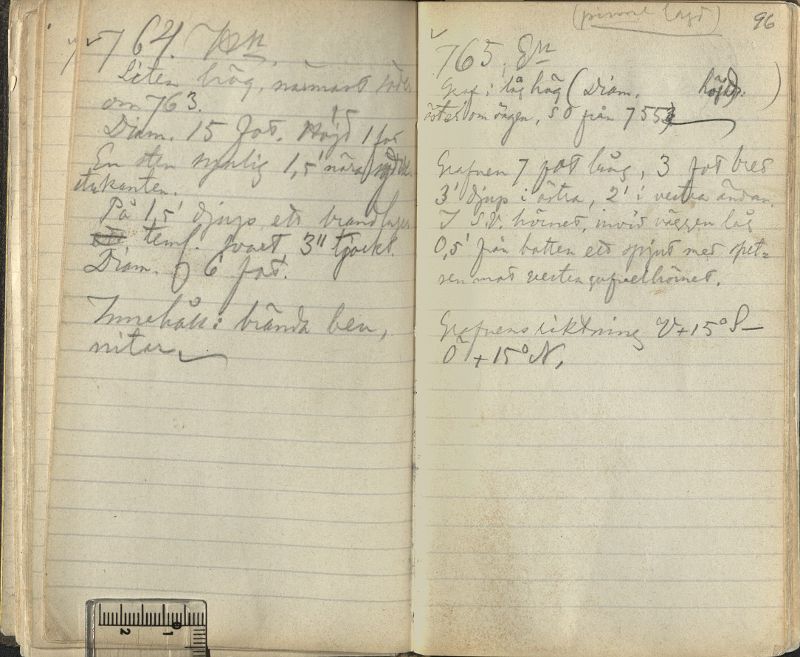 764.
Liten hög, närmast söder
om 763.
Diam. 15 fot. Höjd 1 fot
En sten synlig 1,5' nära
kanten.
På 1,5' djup ett brandlager
teml. svart 3" tjockt.
Diam. 6 fot.
Innehåll: brända ben,
nitar
(prival lagd) 96
765.
Graf i låg hög (Diam. höjd )
öster om vägen, SO från 755
Grafven 7 fot lång, 3 fot bred
3' djup i östra, 2' i vestra ändan.
I S.V. hörnet, invid väggen låg
0,5' från botten ett spjut med spet-
sen mot vestra gafvelhörnet.
Grafvens riktning V+15° S–
Ö+15° N,
2 1 0